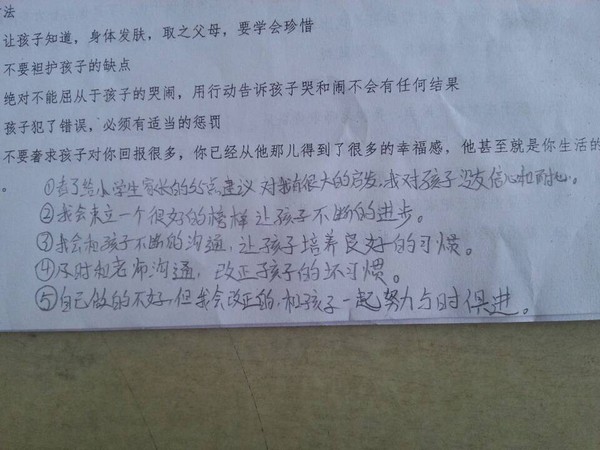 法
让孩子知道，身体发肤，取之父母，要学会珍惜
不要袒护孩子的缺点
绝对不能屈从于孩子的哭闹，用行动告诉孩子哭和闹不会有任何结果
孩子犯了错误，必须有适当的惩罚
不要奢求孩子对你回报很多，你已经从他那儿得到了很多的幸福感，他甚至就是你生活的
。
①看了给小学生家长的60点建议 对我有很大的启发，我对孩子没有信心和耐心。
②我会树立一个很好的榜样 让孩子不断的进步。
③我会和孩子不断的沟通，让孩子培养良好的习惯。
④及时和老师沟通，改正孩子的坏习惯。
⑤自己做的不好，但我会改正的，和孩子一起努力与时俱进。